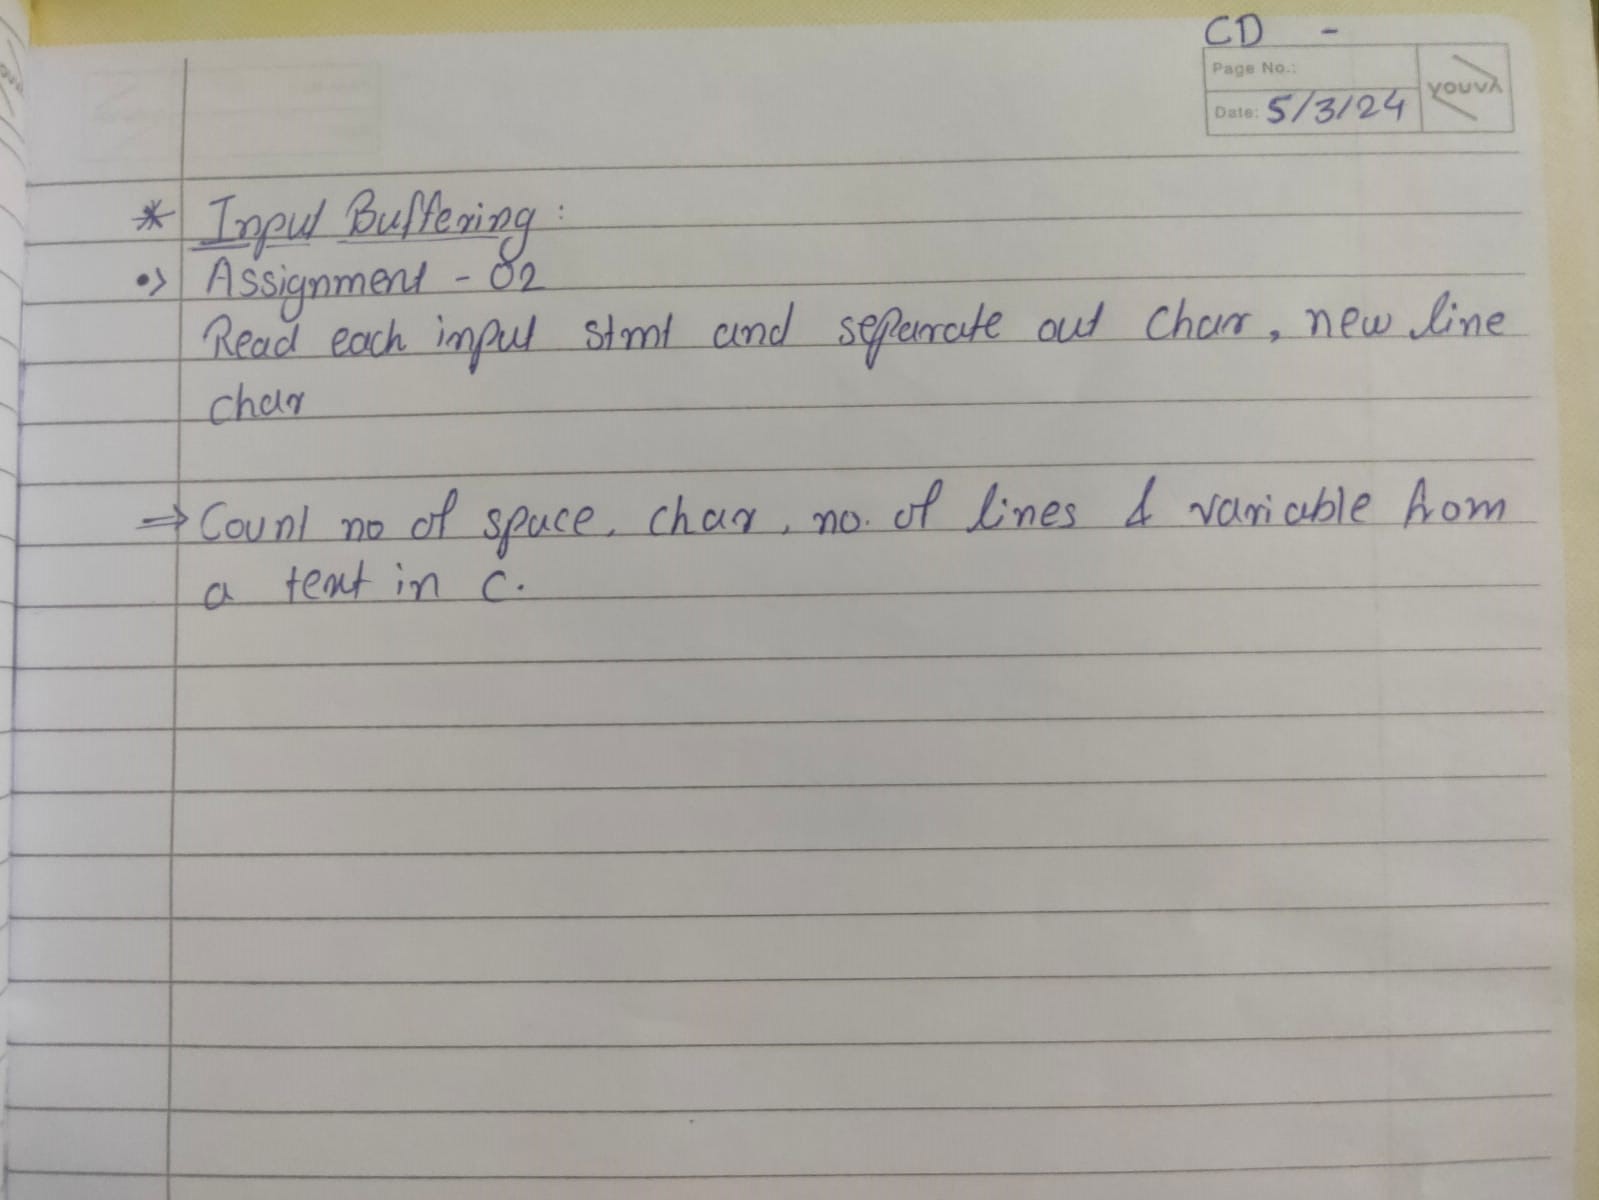 CD -
Page No.:
youva
Date: 5/3/24
* Input Buffering :
•> Assignment - 02
Read each input stmt and separate out char, new line
char
⇒ Count no of space, char, no. of lines & variable from
a text in c.